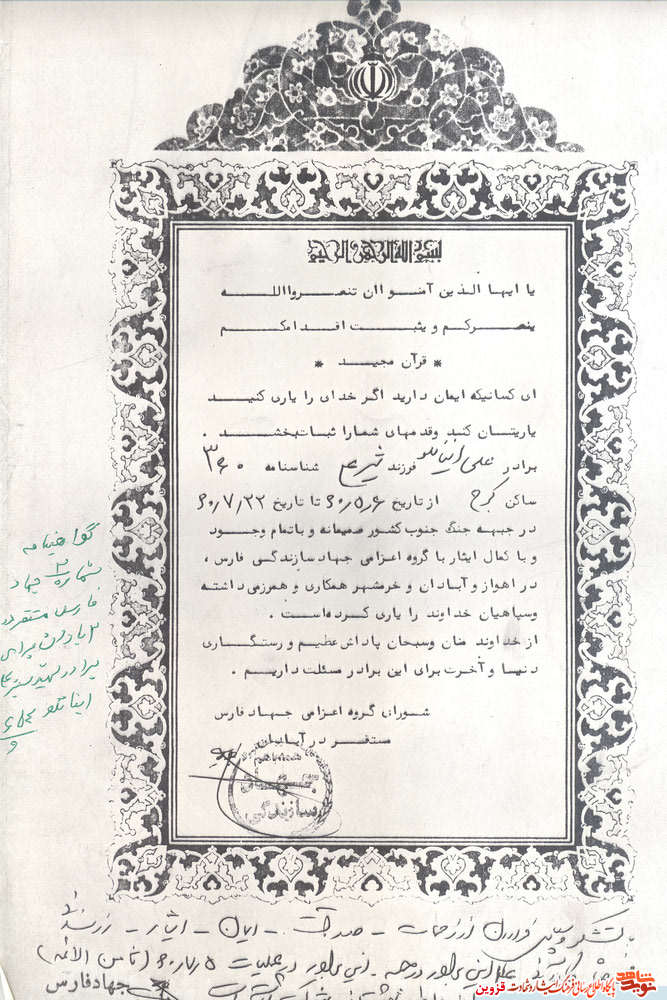 بسم الله الرحمن الرحیم
یا ایها الذین آمنوا ان تنصروا الله
ینصرکم و یثبت اقدامکم
* قرآن مجید *
ای کسانیکه ایمان دارید اگر خدای را یاری کنید
یاریتان کند وقدمهای شمارا ثبات بخشد .
برادر علی اینانلو فرزند شناسنامه ۳۶۰
ساکن کرج از تاریخ ۶۰٫۵٫۶ تا تاریخ ۶۰٫۷٫۲۲
در جبهه جنگ جنوب کشور صمیمانه و باتمام وجود
و با کمال ایثار با گروه اعزامی جهاد سازندگی فارس ،
در اهواز و آبادان و خرمشهر همکاری و همرزمی داشته
وسپاهیان خداوند را یاری کرده است .
از خداوند منان وسبحان پاداش عظیم و رستگاری
دنیا و آخرت برای این برادر مسئلت داریم .
شورای گروه اعزامی جهاد فارس
مستقر در آبادان
جهاد
سازندگی
گواهینامه
شماره ۲ جهاد
فارس مستقر در
آبادان برای
برادر شهید
اینانلو
با تشکر و سپاس فراوان از زحمات - صداقت - ایمان - ایثار -
برادر در عملیات (ثامن الائمه)
جهاد فارس
نوید شاهد
پایگاه اطلاع رسانی فرهنگ ایثار و شهادت قزوین